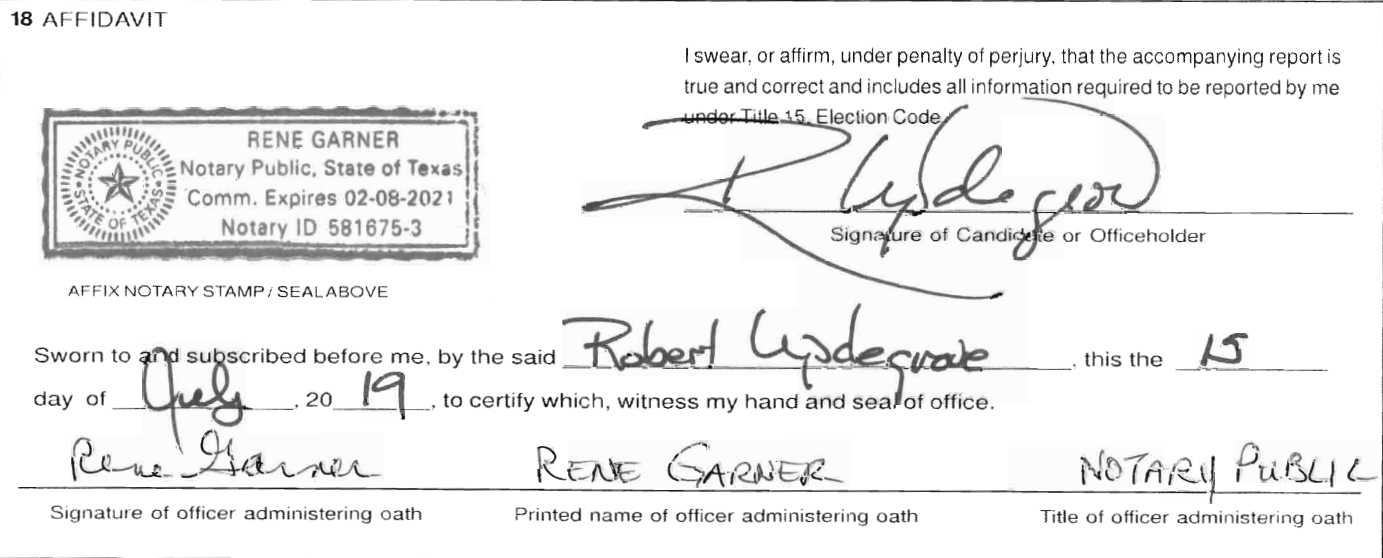 18 AFFIDAVIT
I swear, or affirm, under penalty of perjury, that the accompanying report is
true and correct and includes all information required to be reported by me
under Title 15, Election Code
NOTARY PUBLIC
STATE OF TEXAS
RENE GARNER
Notary Public, State of Texas
Comm. Expires 02-08-2021
Notary ID 581675-3
R Updegrove
Signature of Candidate or Officeholder
AFFIX NOTARY STAMP / SEALABOVE
Sworn to and subscribed before me, by the said Robert Updegrove, this the 15
day of July, 20 19, to certify which, witness my hand and seal of office.
Rene Garner RENE GARNER NOTARY PUBLIC
Signature of officer administering oath Printed name of officer administering oath Title of officer administering oath